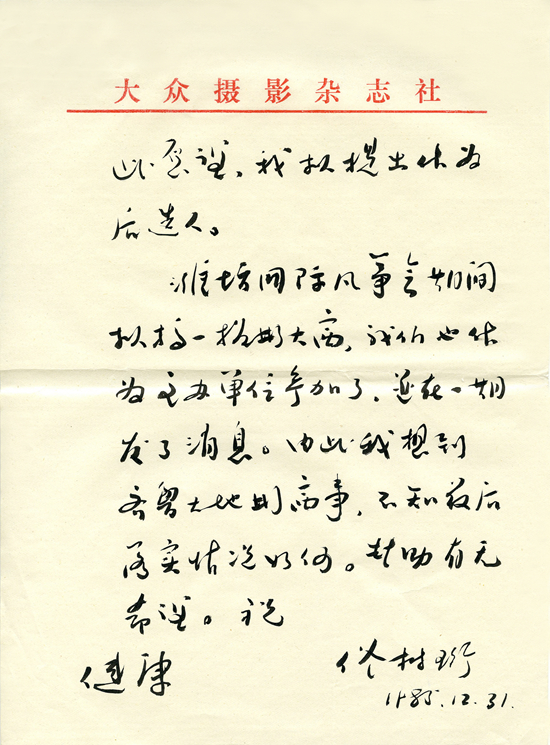 大众摄影杂志社
此愿望,我拟提出作为
后选人。
潍坊国际风筝会期间
拟搞一摄影大赛,我们也作
为主办单位参加了,还在一期
发了消息。由此我想到
齐鲁大地影赛事,不知最后
落实情况如何。赞助有无
希望。祝
健康 佟树珩
1985.12.31.